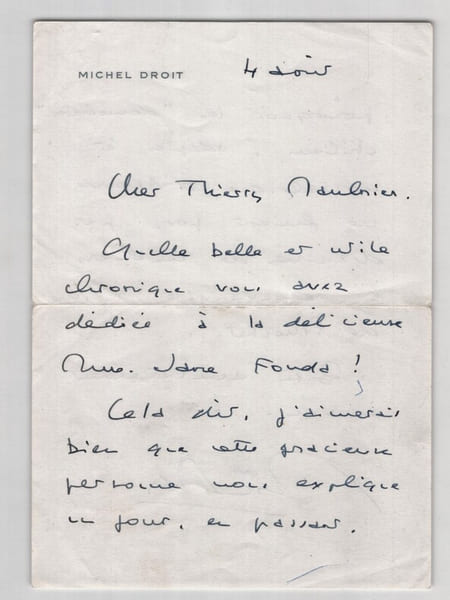 MICHEL DROIT
4 août
Cher Thierry Maulnier.
Quelle belle et utile
chronique vous avez
dédiée à la délicieuse
Mme. Jane Fonda !
Cela dit, j'aimerais
bien que cette gracieuse
personne nous explique
un jour, en passant,